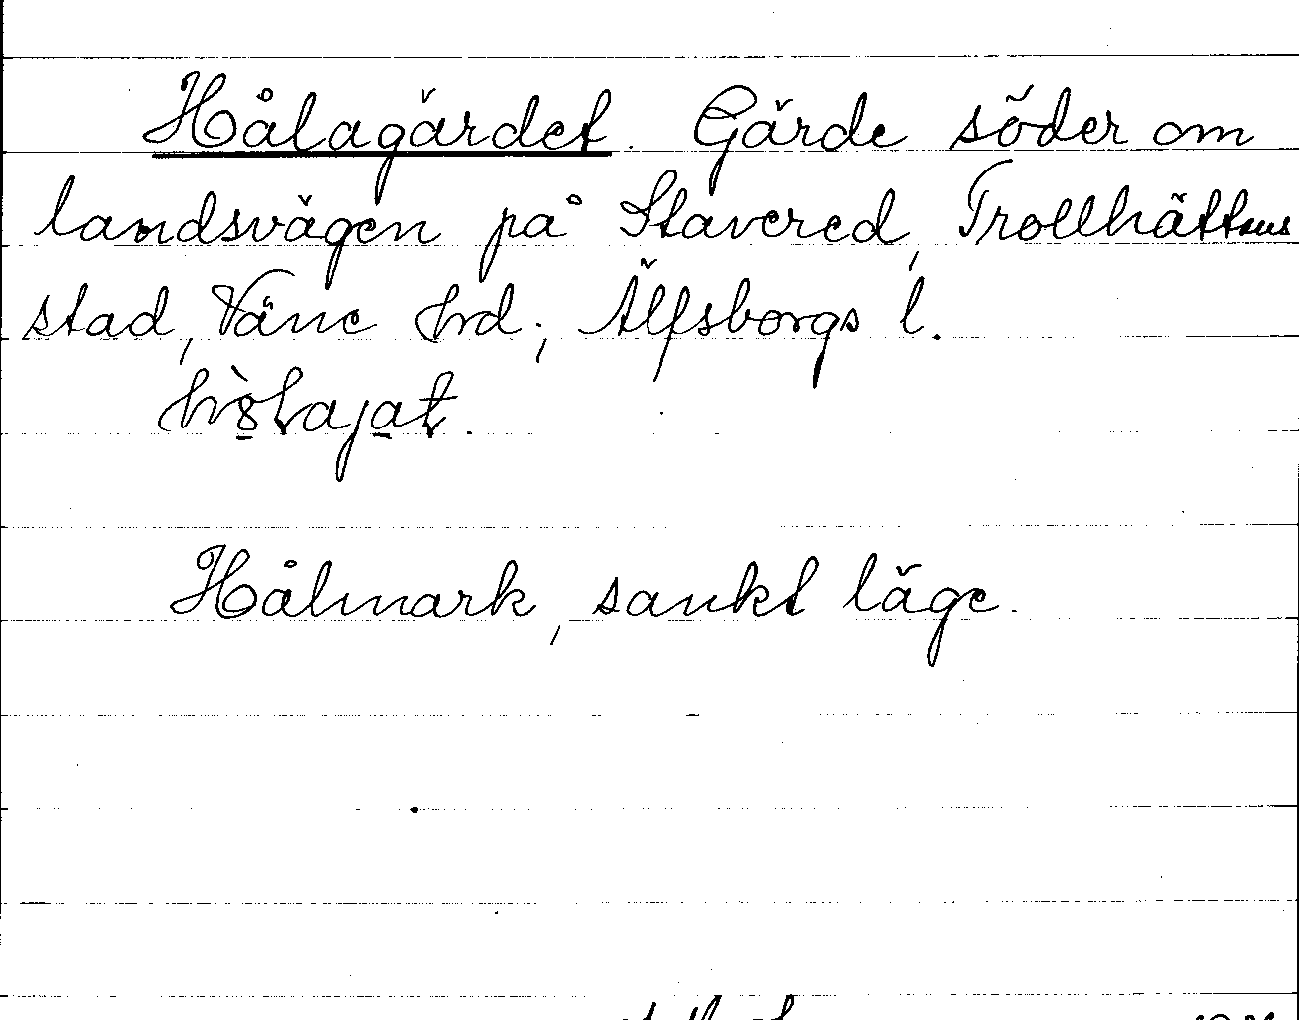 Hålagärdet. Gärde söder om
landsvägen på Stavered, Trollhättans
stad, Väne hrd; Älfsborgs l.
Hålmark, sankt läge.